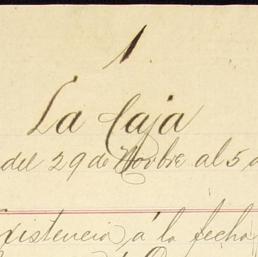 1.
La Caja
del 29 de Novbre al 5 d
xistencia á la fecha